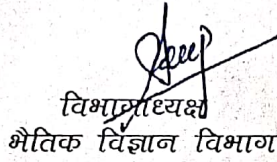 विभागाध्यक्ष
भौतिक विज्ञान विभाग